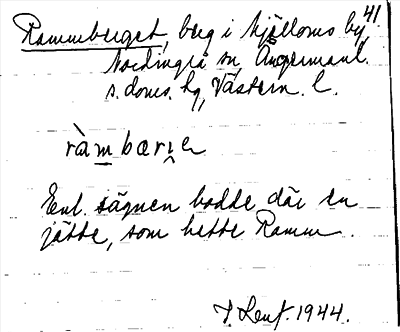 41.
Rammberget, berg i Kjälloms by,
Nordingrå sn, Ångermanl.
s. doms. hg, Västern. l.
ràm bærı̭ e
Enl. sägnen bodde där en
jätte, som hette Ramm.
1944.